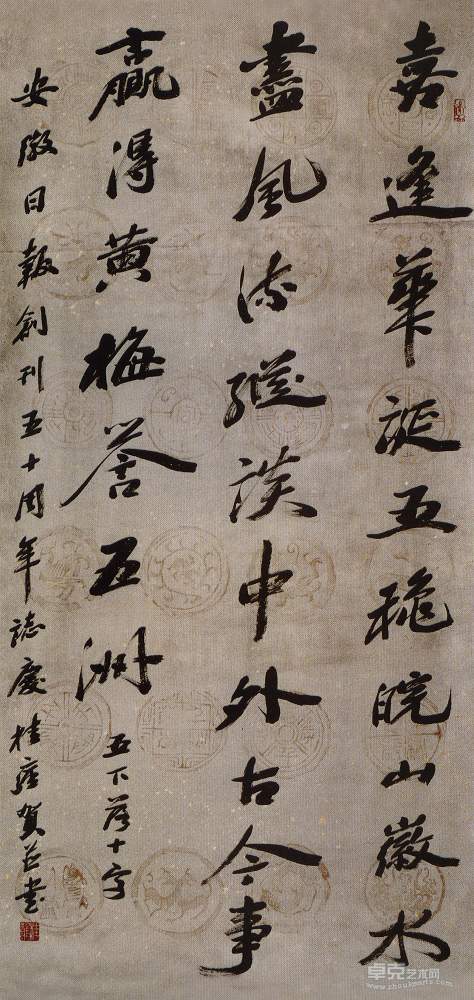 喜逢華誕五穐皖山徽水
盡風流縱談中外古今事
贏得黄梅誉五洲
五下落十字
安徽日報創刊五十周年誌慶 桂雍賀并書
卓克艺术网
www.zhuokearts.com